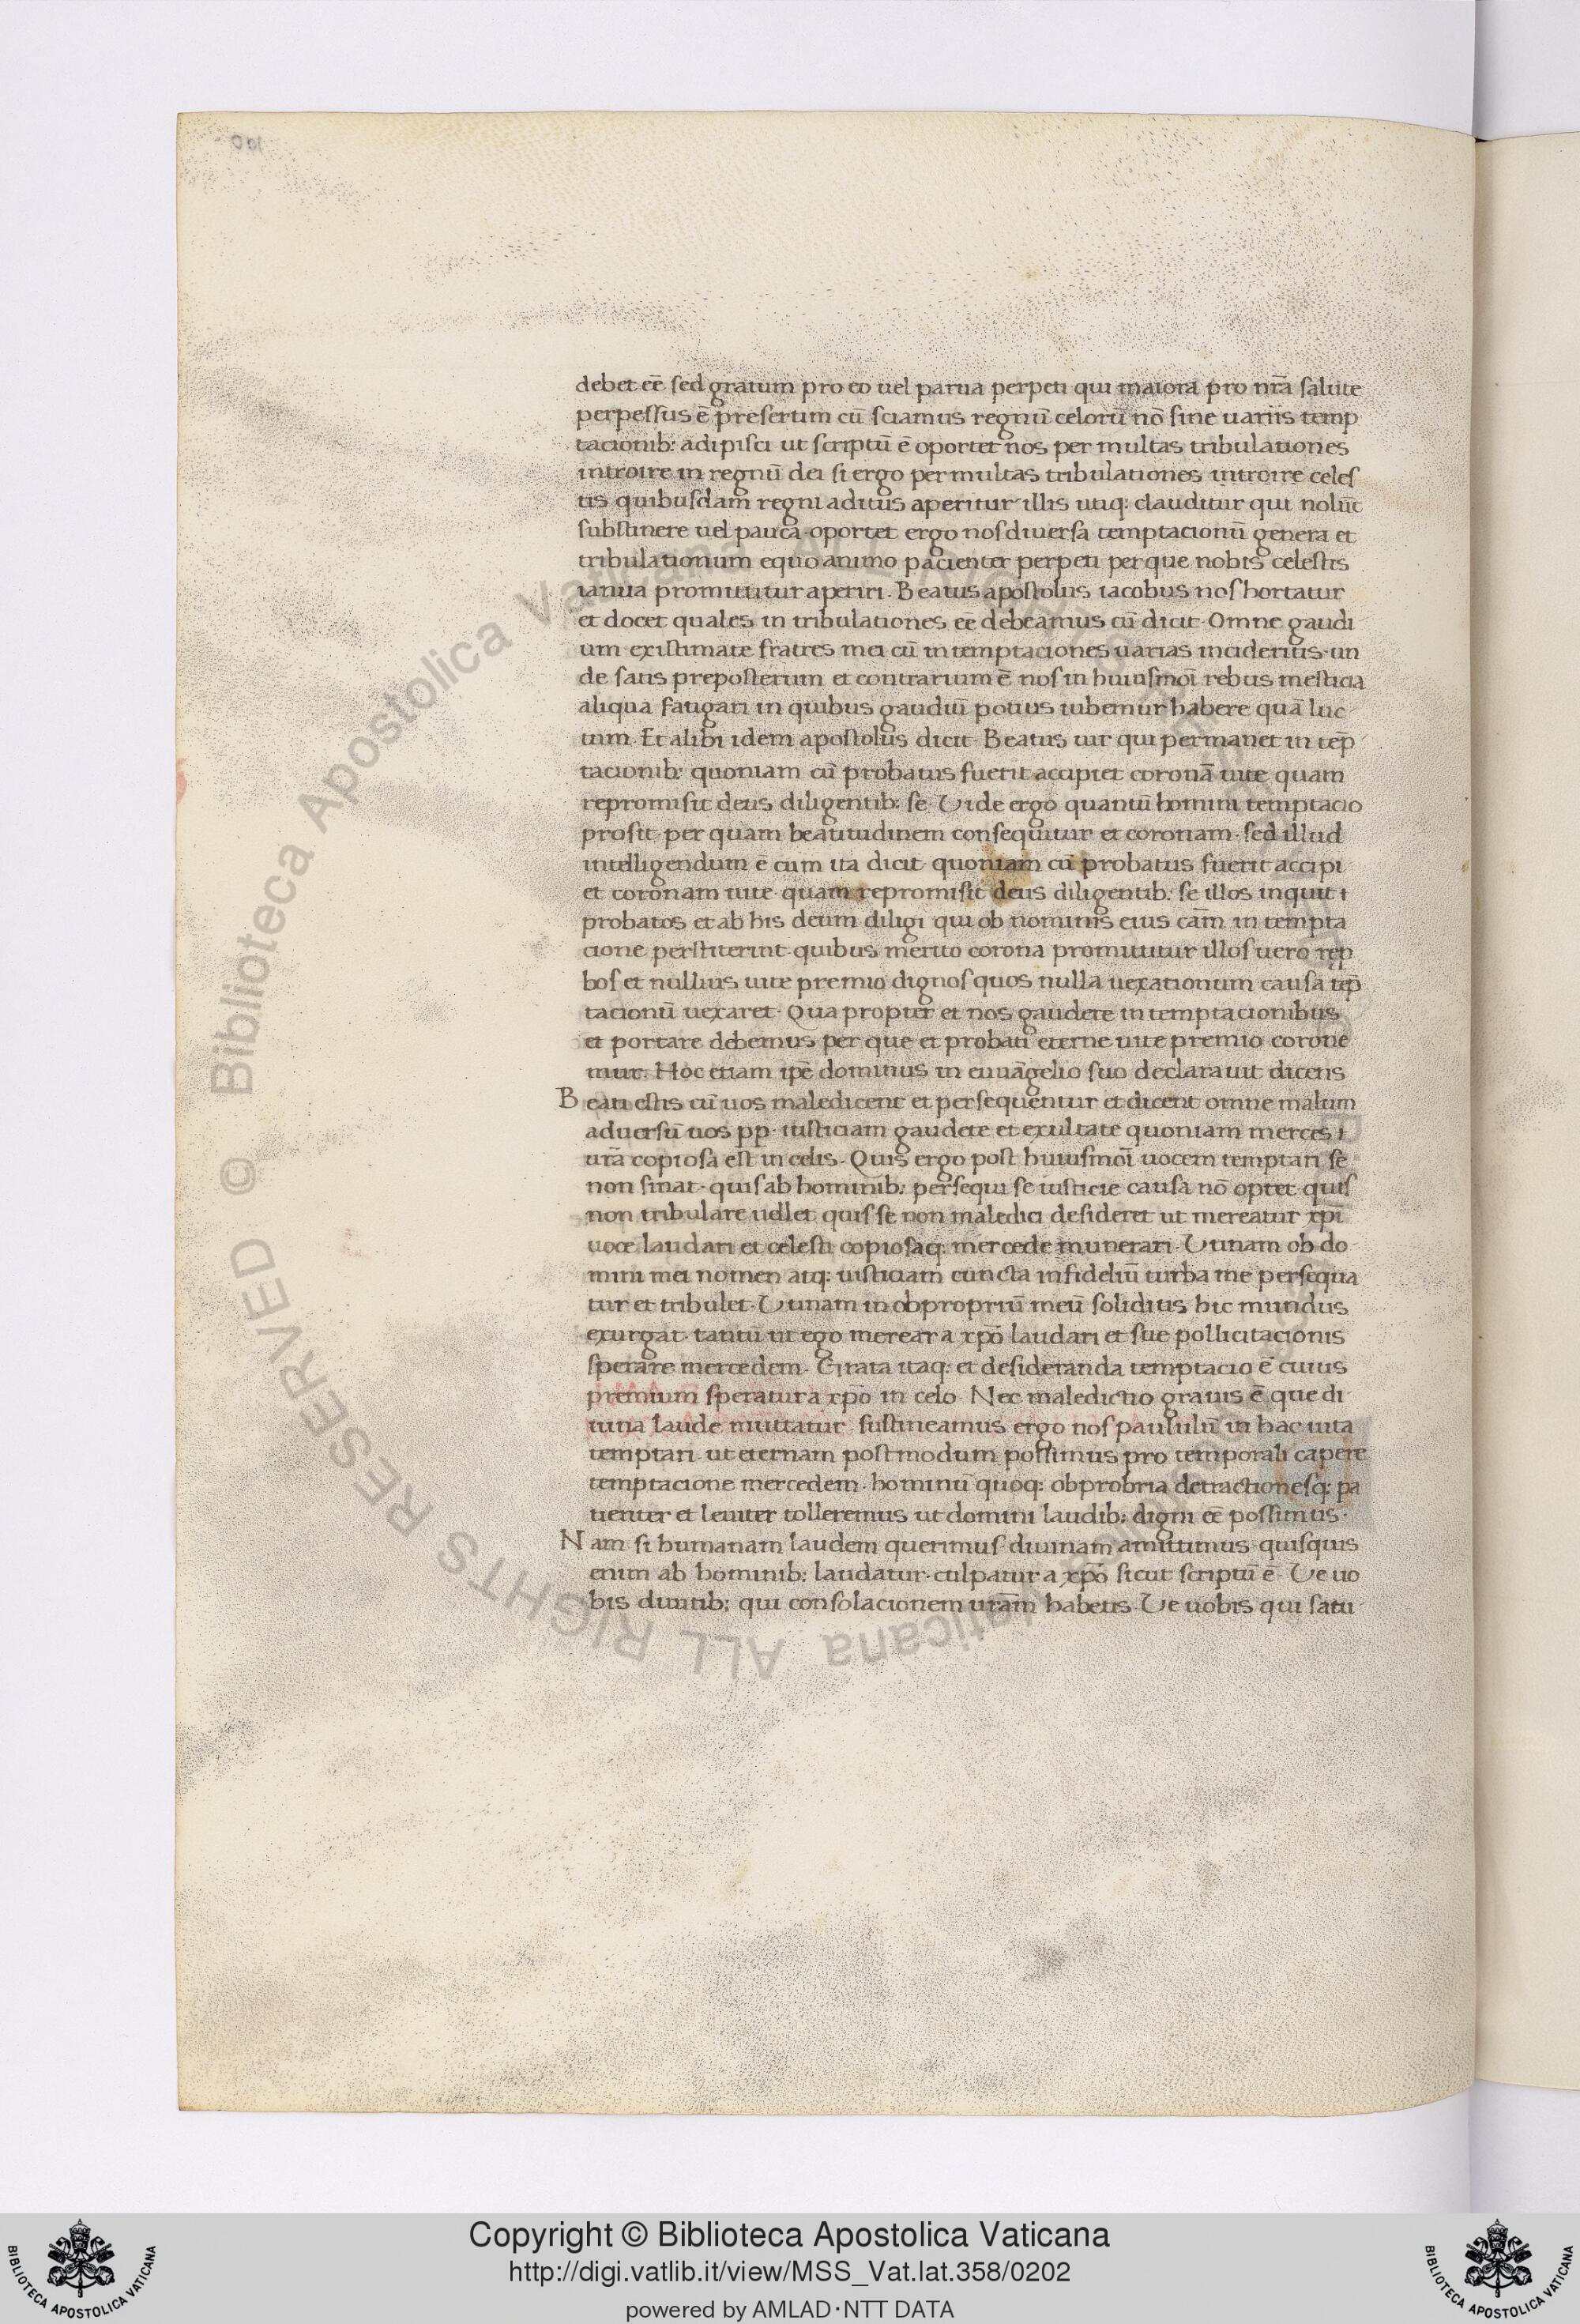 debet eē sed gratum pro eo uel parua perpeti qui maiora pro nrā salute
perpessus ē presertim cū sciamus regnū celorū nō sine uariis temp
tacionib: adipisci ut scriptū ē oportet nos per multas tribulationes
introire in regnū dei si ergo per multas tribulationes introire celes
tis quibusdam regni aditus aperitur illis utiq: clauditur qui nolūt
substinere uel pauca·oportet ergo nos diuersa temptacionū genera et
tribulationum equo animo pacienter perpeti per que nobis celestis
ianua promittitur aperiri. Beatus apostolus iacobus nos hortatur
et docet quales in tribulationes eē debeamus cū dicit·Omne gaudi
um existimate fratres mei cū in temptaciones uarias incideritis·un
de satis preposterum et contrarium ē nos in huiusmōi rebus mesticia
aliqua fatigari in quibus gaudiū potius iubemur habere quā luc
tum·Et alibi idem apostolus dicit·Beatus uir qui permanet in tēp
tacionib: quoniam cū probatus fuerit accipiet coronā uite quam
repromisit deus diligentib: se·Vide ergo quantū homini temptacio
prosit·per quam beatitudinem consequitur et coronam·sed illud
intelligendum ē cum ita dicit·quoniam cū probatus fuerit accipi
et coronam uite·quam repromisit deus diligentib: se illos inquit
probatos et ab his deum diligi qui ob nominis eius cām in tempta
cione perstiterint·quibus merito corona promittitur illos uero rep
bos et nullius uite premio dignos quos nulla uexationum causa tēp
tacionū uexaret·Qua propter et nos gaudere in temptacionibus
et portare debemus per que et probati eterne uite premio corone
mur. Hoc etiam ipē dominus in euuāgelio suo declarauit dicens
Beati estis cū uos maledicent et persequentur et dicent omne malum
aduersū uos pp·iusticiam gaudete et exultate quoniam merces
urā copiosa est in celis·Quis ergo post huiusmōi uocem temptari se
non sinat·quis ab hominib: persequi se iusticie causa nō optet·quis
non tribulare uellet quis se non maledici desideret ut mereatur xp̄i
uoce laudari et celesti copiosaq: mercede munerari·Vtinam ob do
mini mei nomen atq: iusticiam cuncta infideliū turba me persequa
tur et tribulet·Vtinam in obpropriū meū solidius hic mundus
exurgat·tantū ut ego merear a xp̄o laudari et sue pollicitacionis
sperare mercedem·Grata itaq: et desideranda temptacio ē cuius
premium speratur a xp̄o in celo·Nec maledictio grauis ē que di
uina laude muttatur·sustineamus ergo nos paululū in hac uita
temptari·ut eternam postmodum possimus pro temporali capere
temptacione mercedem·hominū quoq: obprobria detractionesq: pa
tienter et leuiter tolleremus ut domini laudib: digni eē possimus·
Nam si humanam laudem querimus diuinam amittimus·quisquis
enim ab hominib: laudatur·culpatur a xp̄o sicut scriptū ē·Ve uo
bis diuitib: qui consolacionem urām habetis·Ve uobis qui satu
Biblioteca Apostolica Vaticana
ALL RIGHTS RESERVED ©
Copyright © Biblioteca Apostolica Vaticana
http://digi.vatlib.it/view/MSS_Vat.lat.358/0202
powered by AMLAD·NTT DATA
BIBLIOTECA APOSTOLICA VATICANA
BIBLIOTECA APOSTOLICA VATICANA